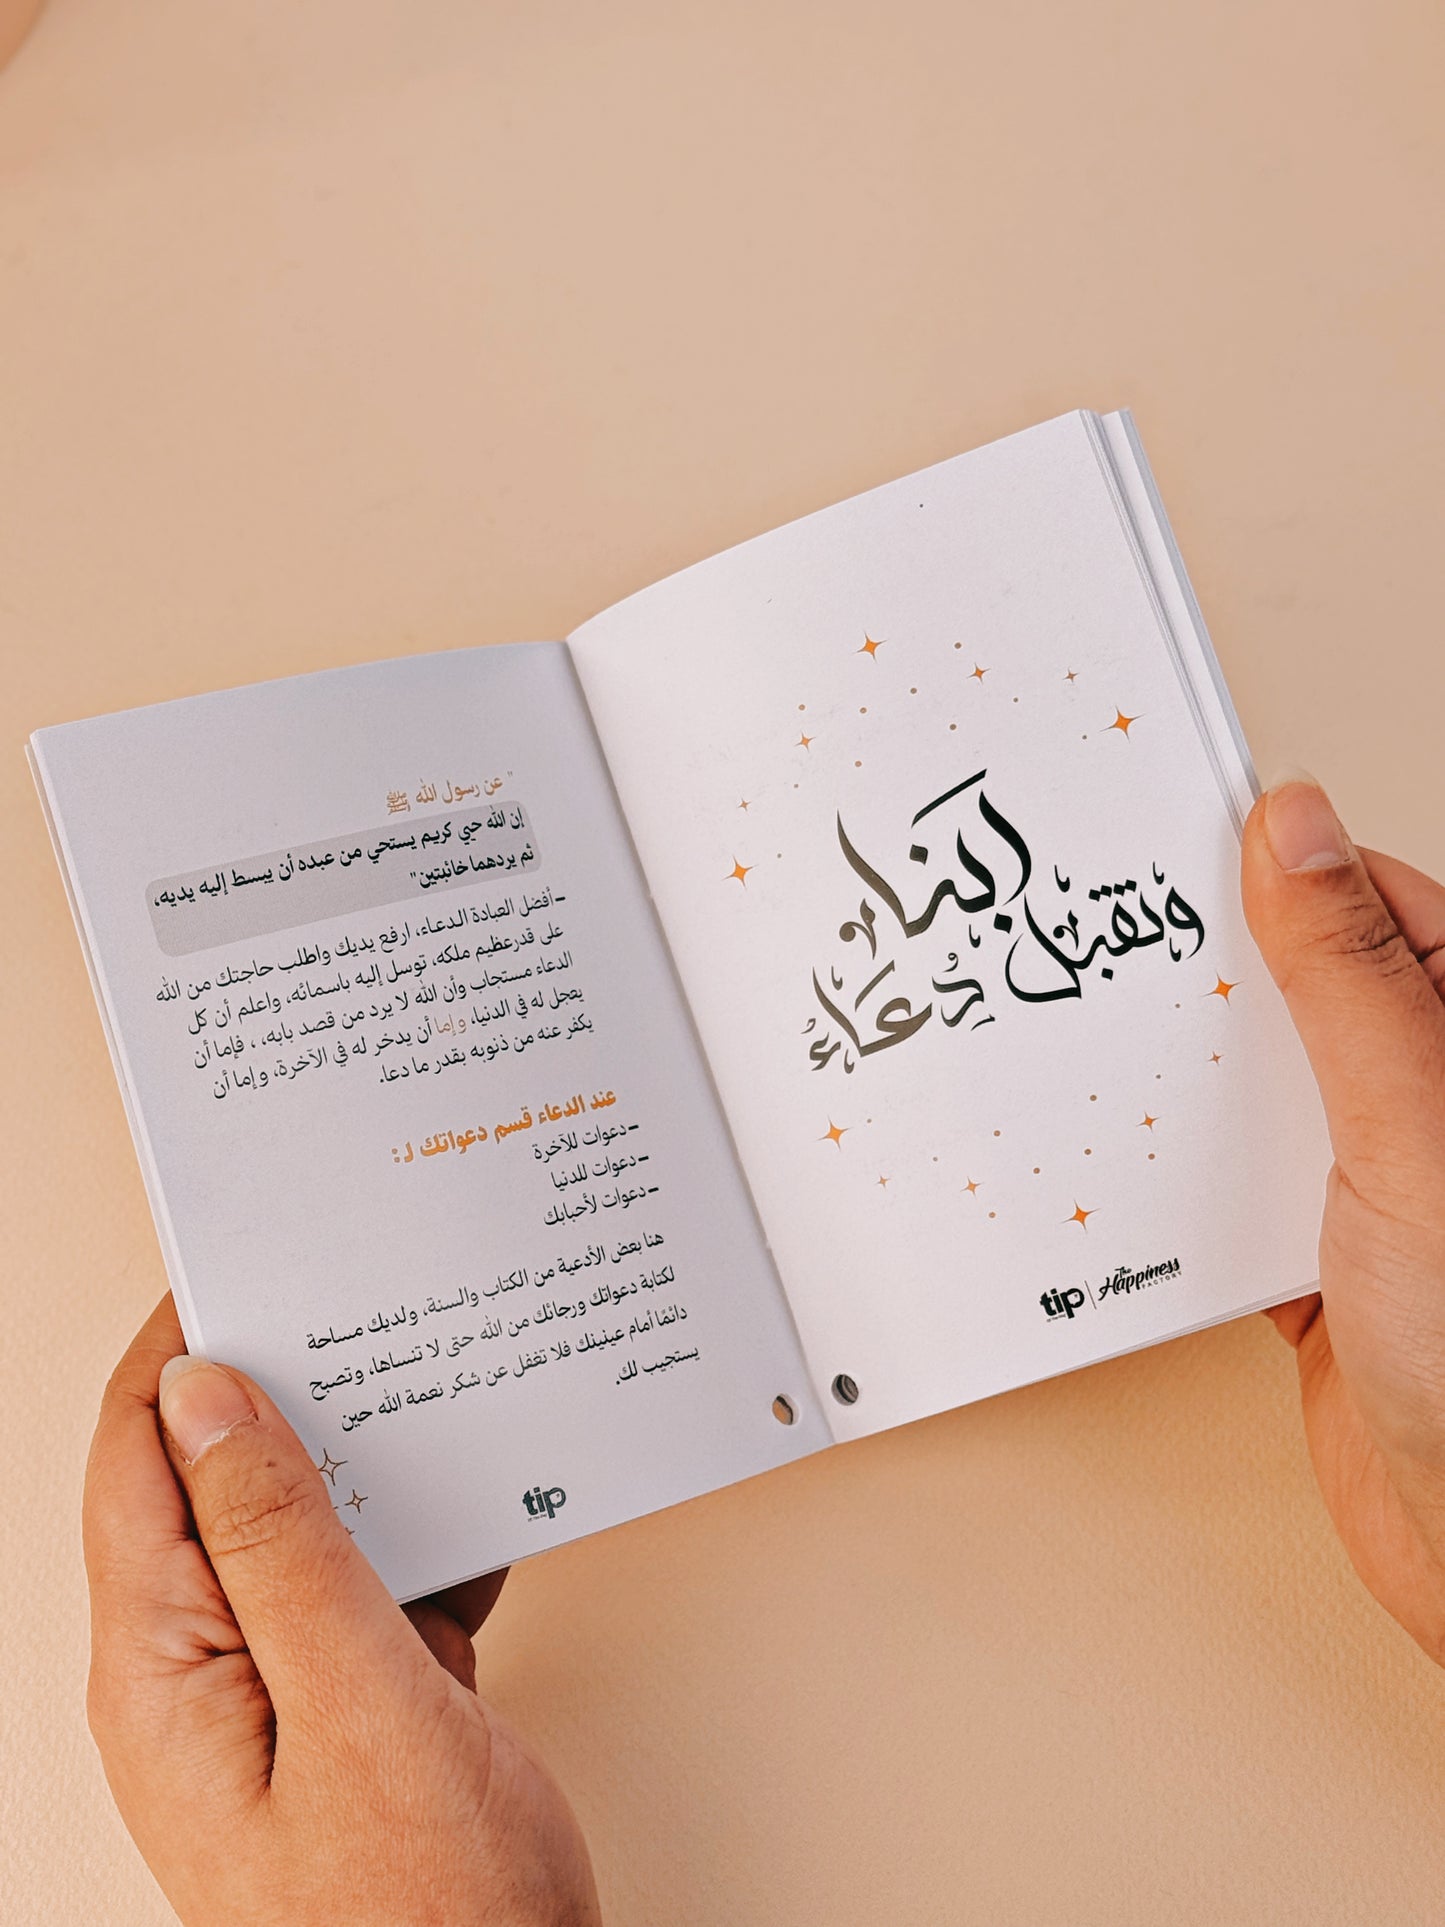 ربنا
وتقبل
دُعَاءِ
tip
The
Happiness
FACTORY
" عن رسول الله ﷺ
إن الله حيي كريم يستحي من عبده أن يبسط إليه يديه،
ثم يردهما خائبتين"
-أفضل العبادة الدعاء، ارفع يديك واطلب حاجتك من الله
على قدرعظيم ملكه، توسل إليه باسمائه، واعلم أن كل
الدعاء مستجاب وأن الله لا يرد من قصد بابه، ، فإما أن
يعجل له في الدنيا، وإما أن يدخر له في الآخرة، وإما أن
يكفر عنه من ذنوبه بقدر ما دعا.
عند الدعاء قسم دعواتك لـ :
-دعوات للآخرة
-دعوات للدنيا
-دعوات لأحبابك
هنا بعض الأدعية من الكتاب والسنة، ولديك مساحة
لكتابة دعواتك ورجائك من الله حتى لا تنساها، وتصبح
دائمًا أمام عينينك فلا تغفل عن شكر نعمة الله حين
يستجيب لك.
tip